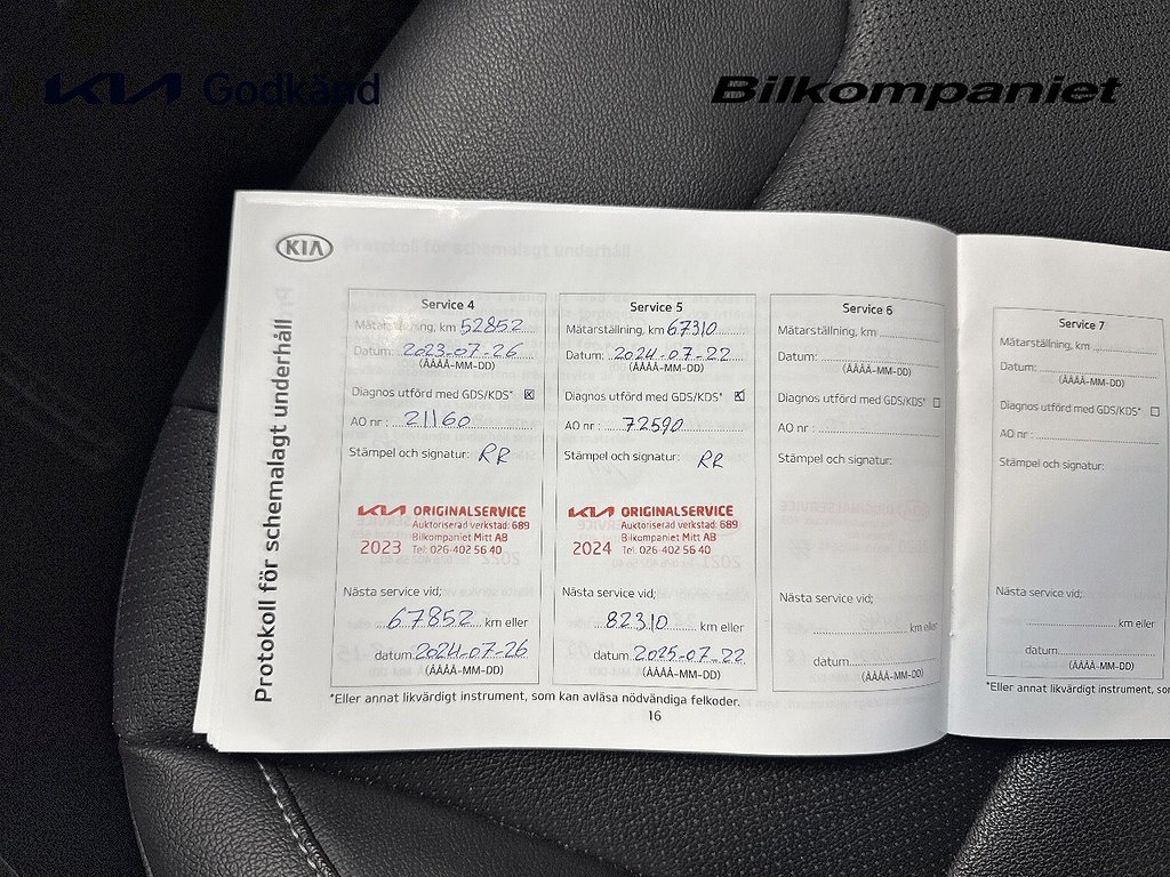 KIA Godkänd
Bilkompaniet
KIA
Protokoll för schemalagt underhåll
Service 4
Mätarställning, km 52852
Datum: 2023-07-26
(ÅÅÅÅ-MM-DD)
Diagnos utförd med GDS/KDS* ☒
AO nr : 21160
Stämpel och signatur: RR
KIA ORIGINALSERVICE
Auktoriserad verkstad: 689
Bilkompaniet Mitt AB
2023 Tel: 026-402 56 40
Nästa service vid;
67852 km eller
datum 2024-07-26
(ÅÅÅÅ-MM-DD)
Service 5
Mätarställning, km 67310
Datum: 2024-07-22
(ÅÅÅÅ-MM-DD)
Diagnos utförd med GDS/KDS* ☒
AO nr : 72590
Stämpel och signatur: RR
KIA ORIGINALSERVICE
Auktoriserad verkstad: 689
Bilkompaniet Mitt AB
2024 Tel: 026-402 56 40
Nästa service vid;
82310 km eller
datum 2025-07-22
(ÅÅÅÅ-MM-DD)
Service 6
Mätarställning, km
Datum:
(ÅÅÅÅ-MM-DD)
Diagnos utförd med GDS/KDS* ☐
AO nr :
Stämpel och signatur:
Nästa service vid;
km eller
datum
(ÅÅÅÅ-MM-DD)
*Eller annat likvärdigt instrument, som kan avläsa nödvändiga felkoder.
16
Service 7
Mätarställning, km
Datum:
(ÅÅÅÅ-MM-DD)
Diagnos utförd med GDS/KDS* ☐
AO nr :
Stämpel och signatur:
Nästa service vid;
km eller
datum
(ÅÅÅÅ-MM-DD)
*Eller annat likvärdigt instrument, so